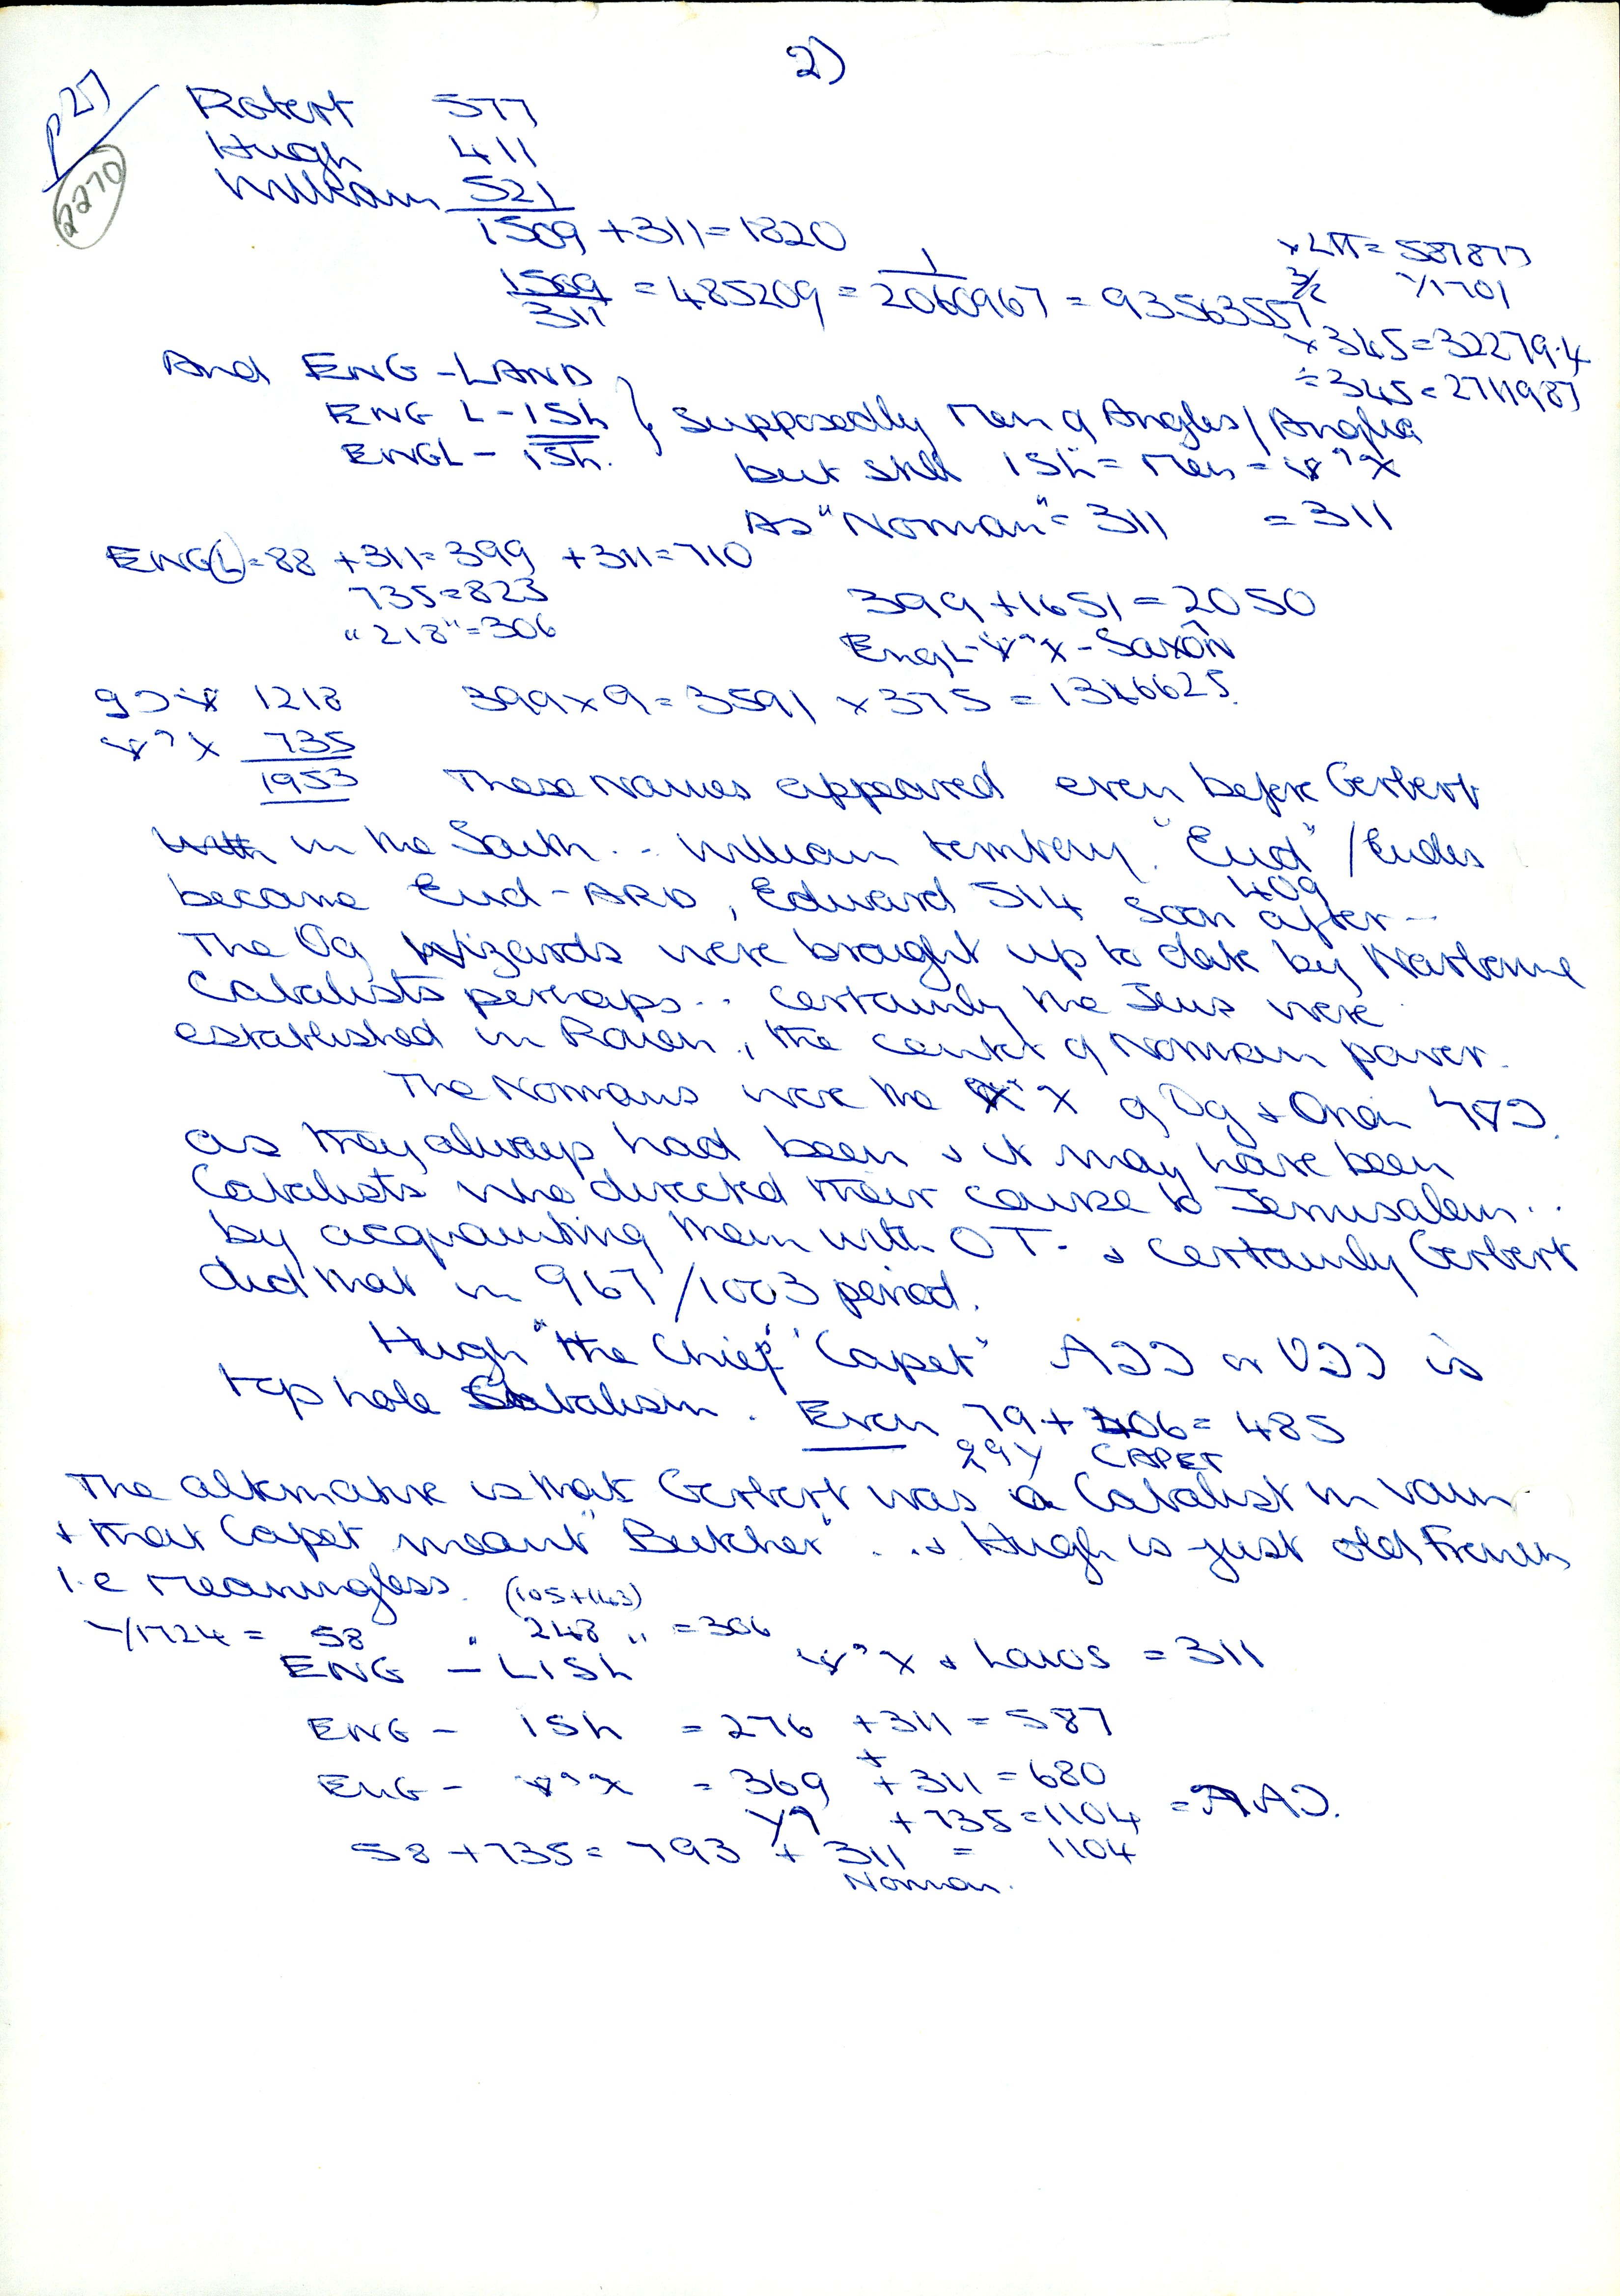 2)
p27
2270
Robert 577
Hugh 411
William 521
1509 + 311 = 1820
1509/311 = 485209 = 1/2060967 = 93563557
x 345 = 32279.4
÷ 345 = 2711987
And ENG - LAND
ENG L - ISh
ENGL - ISh.
Supposedly Men of Angles / Anglia
but still ISh = Men =
As "Norman" = 311 = 311
ENG(L) = 88 + 311 = 399 + 311 = 710
735 = 823
"218" = 306
399 + 1651 = 2050
EngL - - Saxon
1218
399 x 9 = 3591 x 375 = 1346625.
735
1953
These Names appeared even before Gerbert
in the South .. William "Eud" / Eudes
409
became Eud - ARD, Edward 514 soon after --
The Og Wizards were brought up to date by Narbonne
Cabalists perhaps .. certainly the Jews were
established in Rouen, the center of Norman power.
The Normans were the of Og &
as they always had been & it may have been
Cabalists who directed their course to Jerusalem ..
by acquainting them with OT. & certainly Gerbert
did that in 967/1003 period.
Hugh "the Chief" "Capet" or is
top hole Cabalism. Even 79 + 406 = 485
CAPET
The alternative is that Gerbert was a Cabalist in vain
& that Capet meant "Butcher" .. & Hugh is just old French
i.e meaningless.
(105+143)
1724 = 58 "248" = 306
ENG - LISh
& Laios = 311
ENG - ISh = 276 + 311 = 587
ENG - = 369 + 311 = 680
+ 735 = 1104
58 + 735 = 793 + 311 = 1104
Norman.